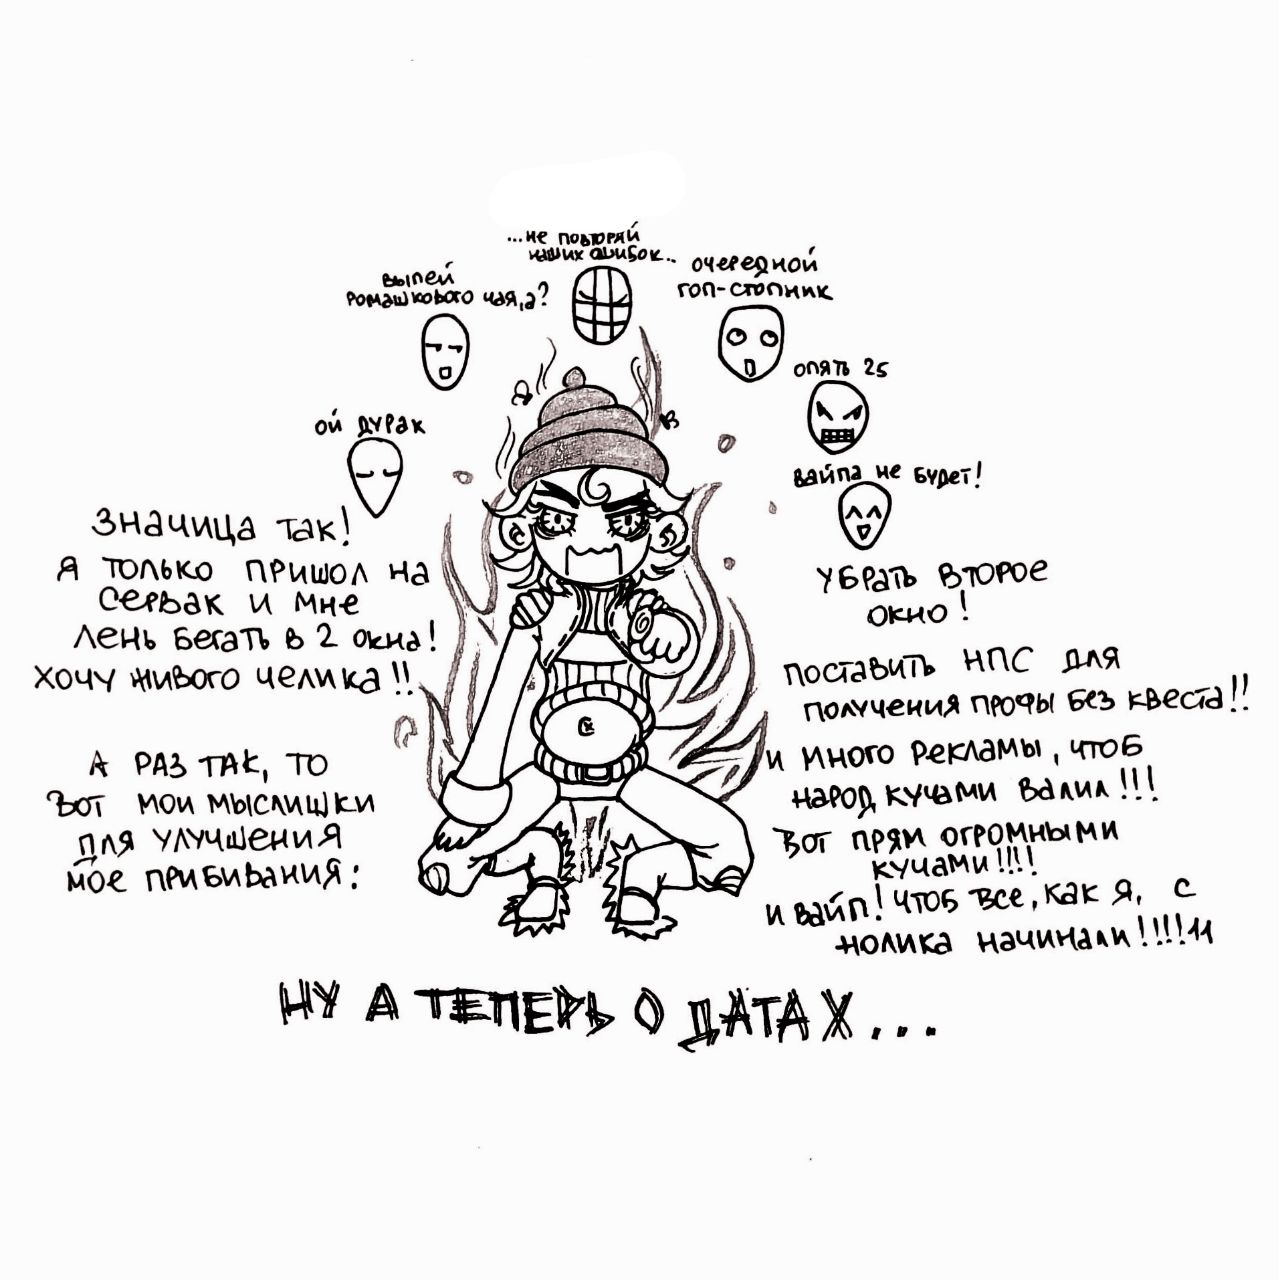 ...не повторяй
наших ошибок..
выпей
ромашкового чая, а?
очередной
гоп-стопник
опять 25
ой дурак
вайпа не будет!
значица так!
я только пришол на
сервак и мне
лень бегать в 2 окна!
хочу живого челика!!
А раз так, то
вот мои мыслишки
для улучшения
мое прибивания:
убрать второе
окно!
поставить НПС для
получения профы без квеста!!
и много рекламы, чтоб
народ кучами валил!!!
Вот прям огромными
кучами!!!!
и вайп! чтоб все, как я, с
нолика начинали!!!!11
НУ А ТЕПЕРЬ О ДАТАХ...